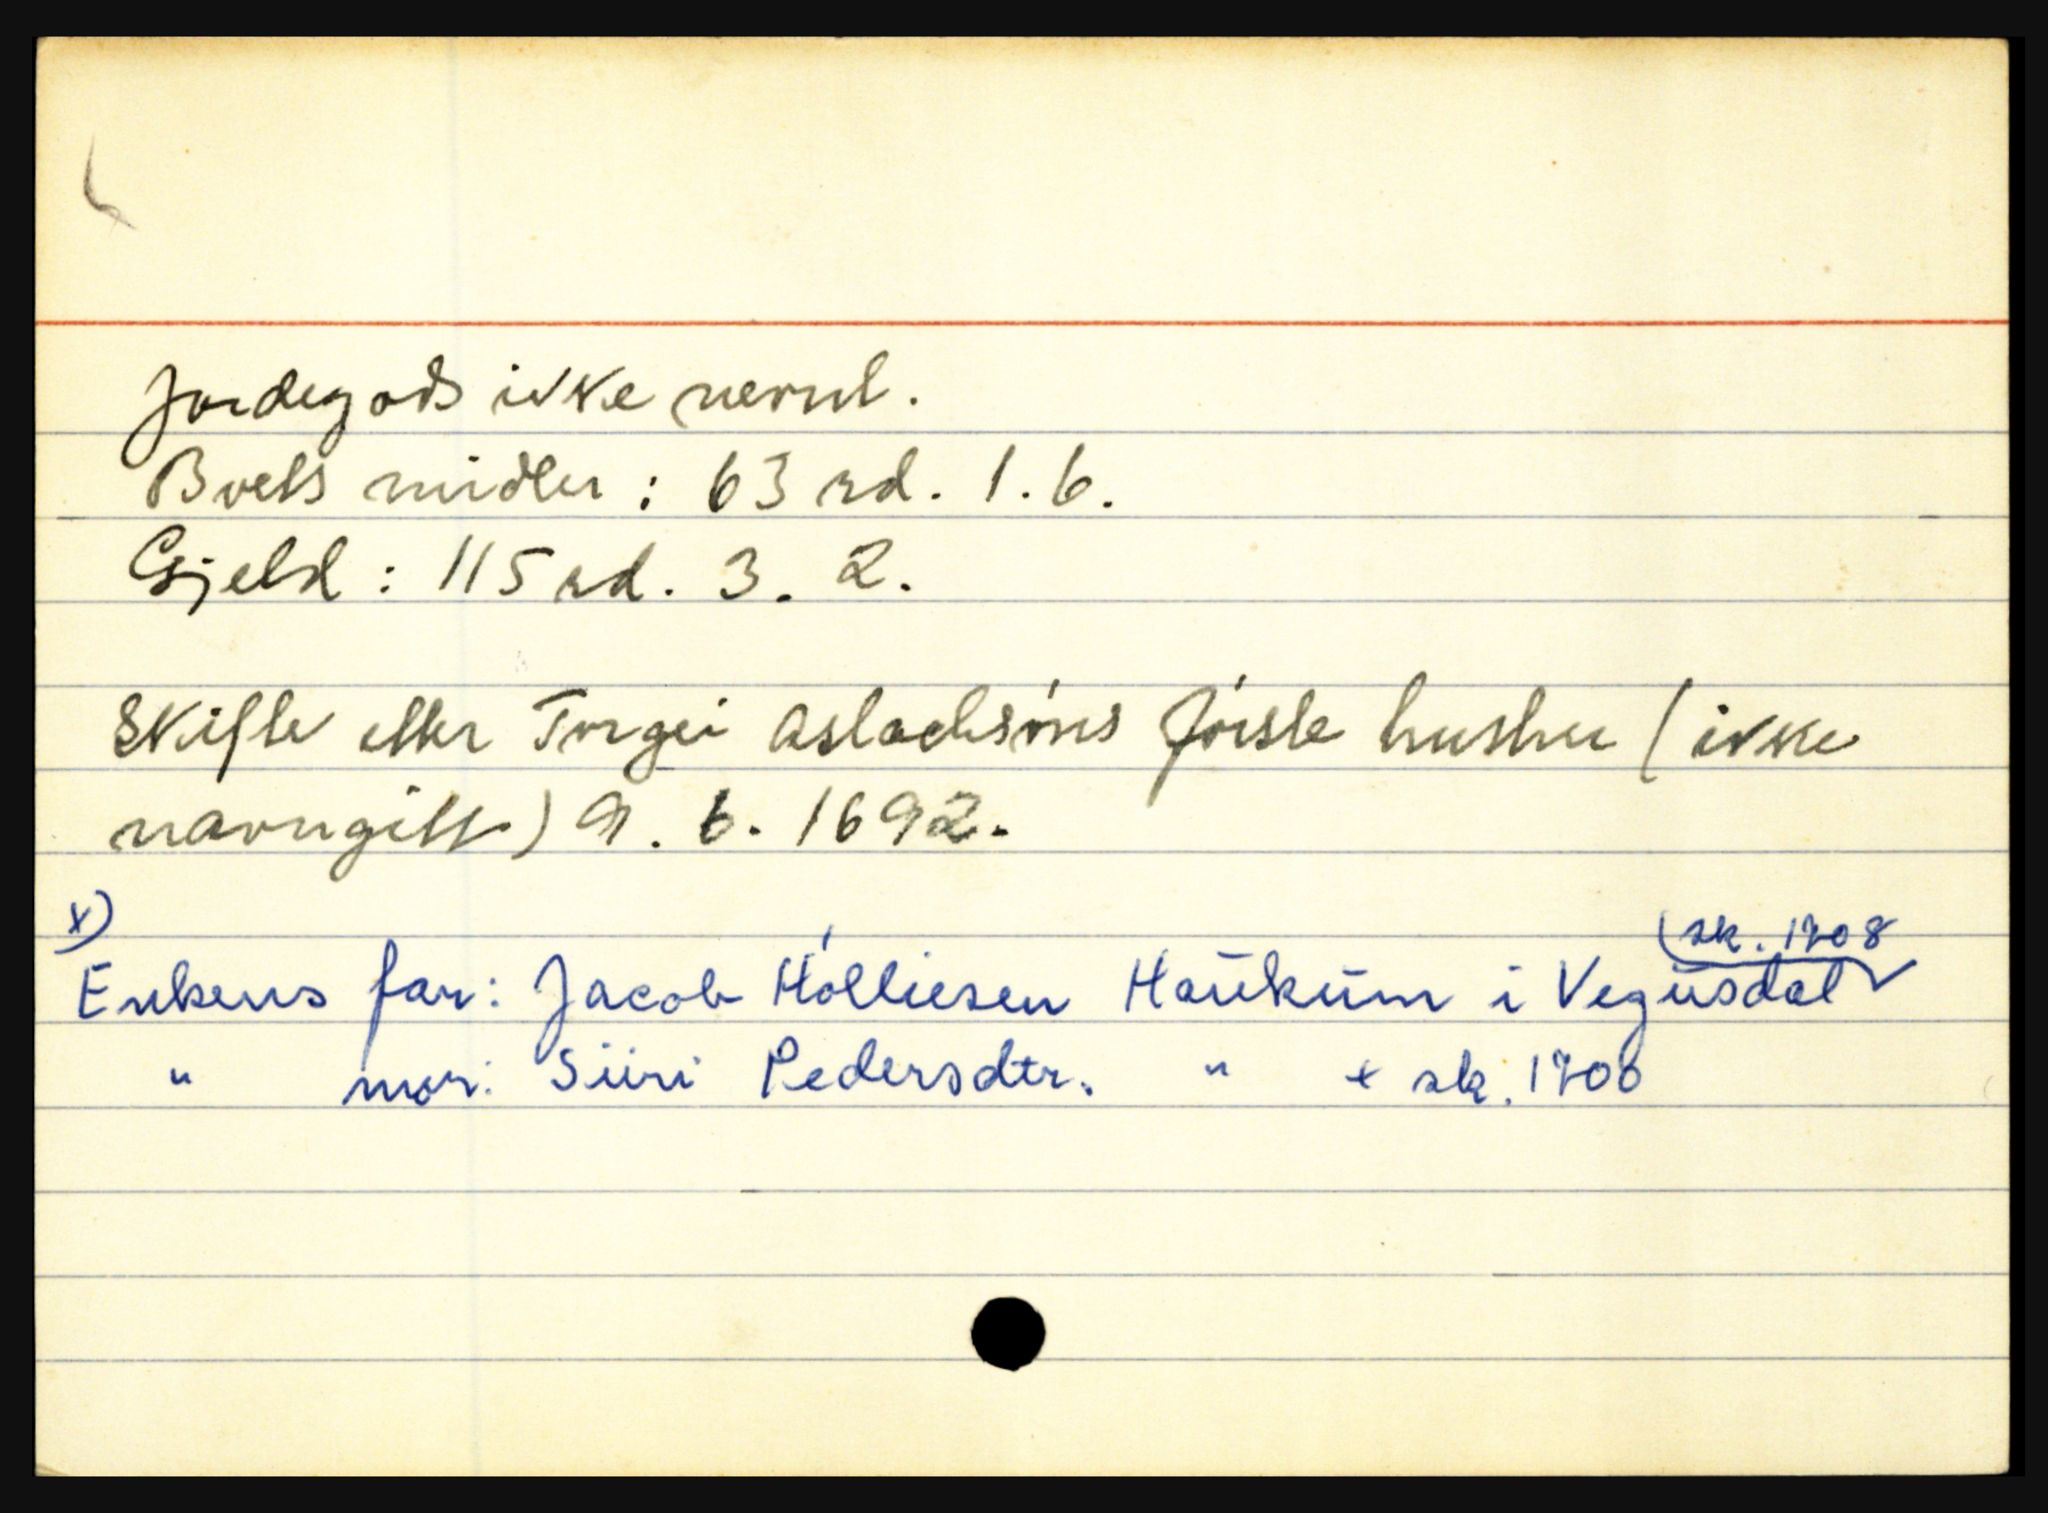 Jordegods ikke nevnt.
Boets midler: 63 rd. 1. 6.
Gjeld: 115 rd. 3. 2.
Skifte etter Torgei Aslachsøns første hustru (ikke
navngitt) 9. 6. 1692.
x)
(sk. 1708
Enkens far: Jacob Hólliesen Haukum i Vegusdal
" mor: Siiri Pedersdtr. " + sk. 1700